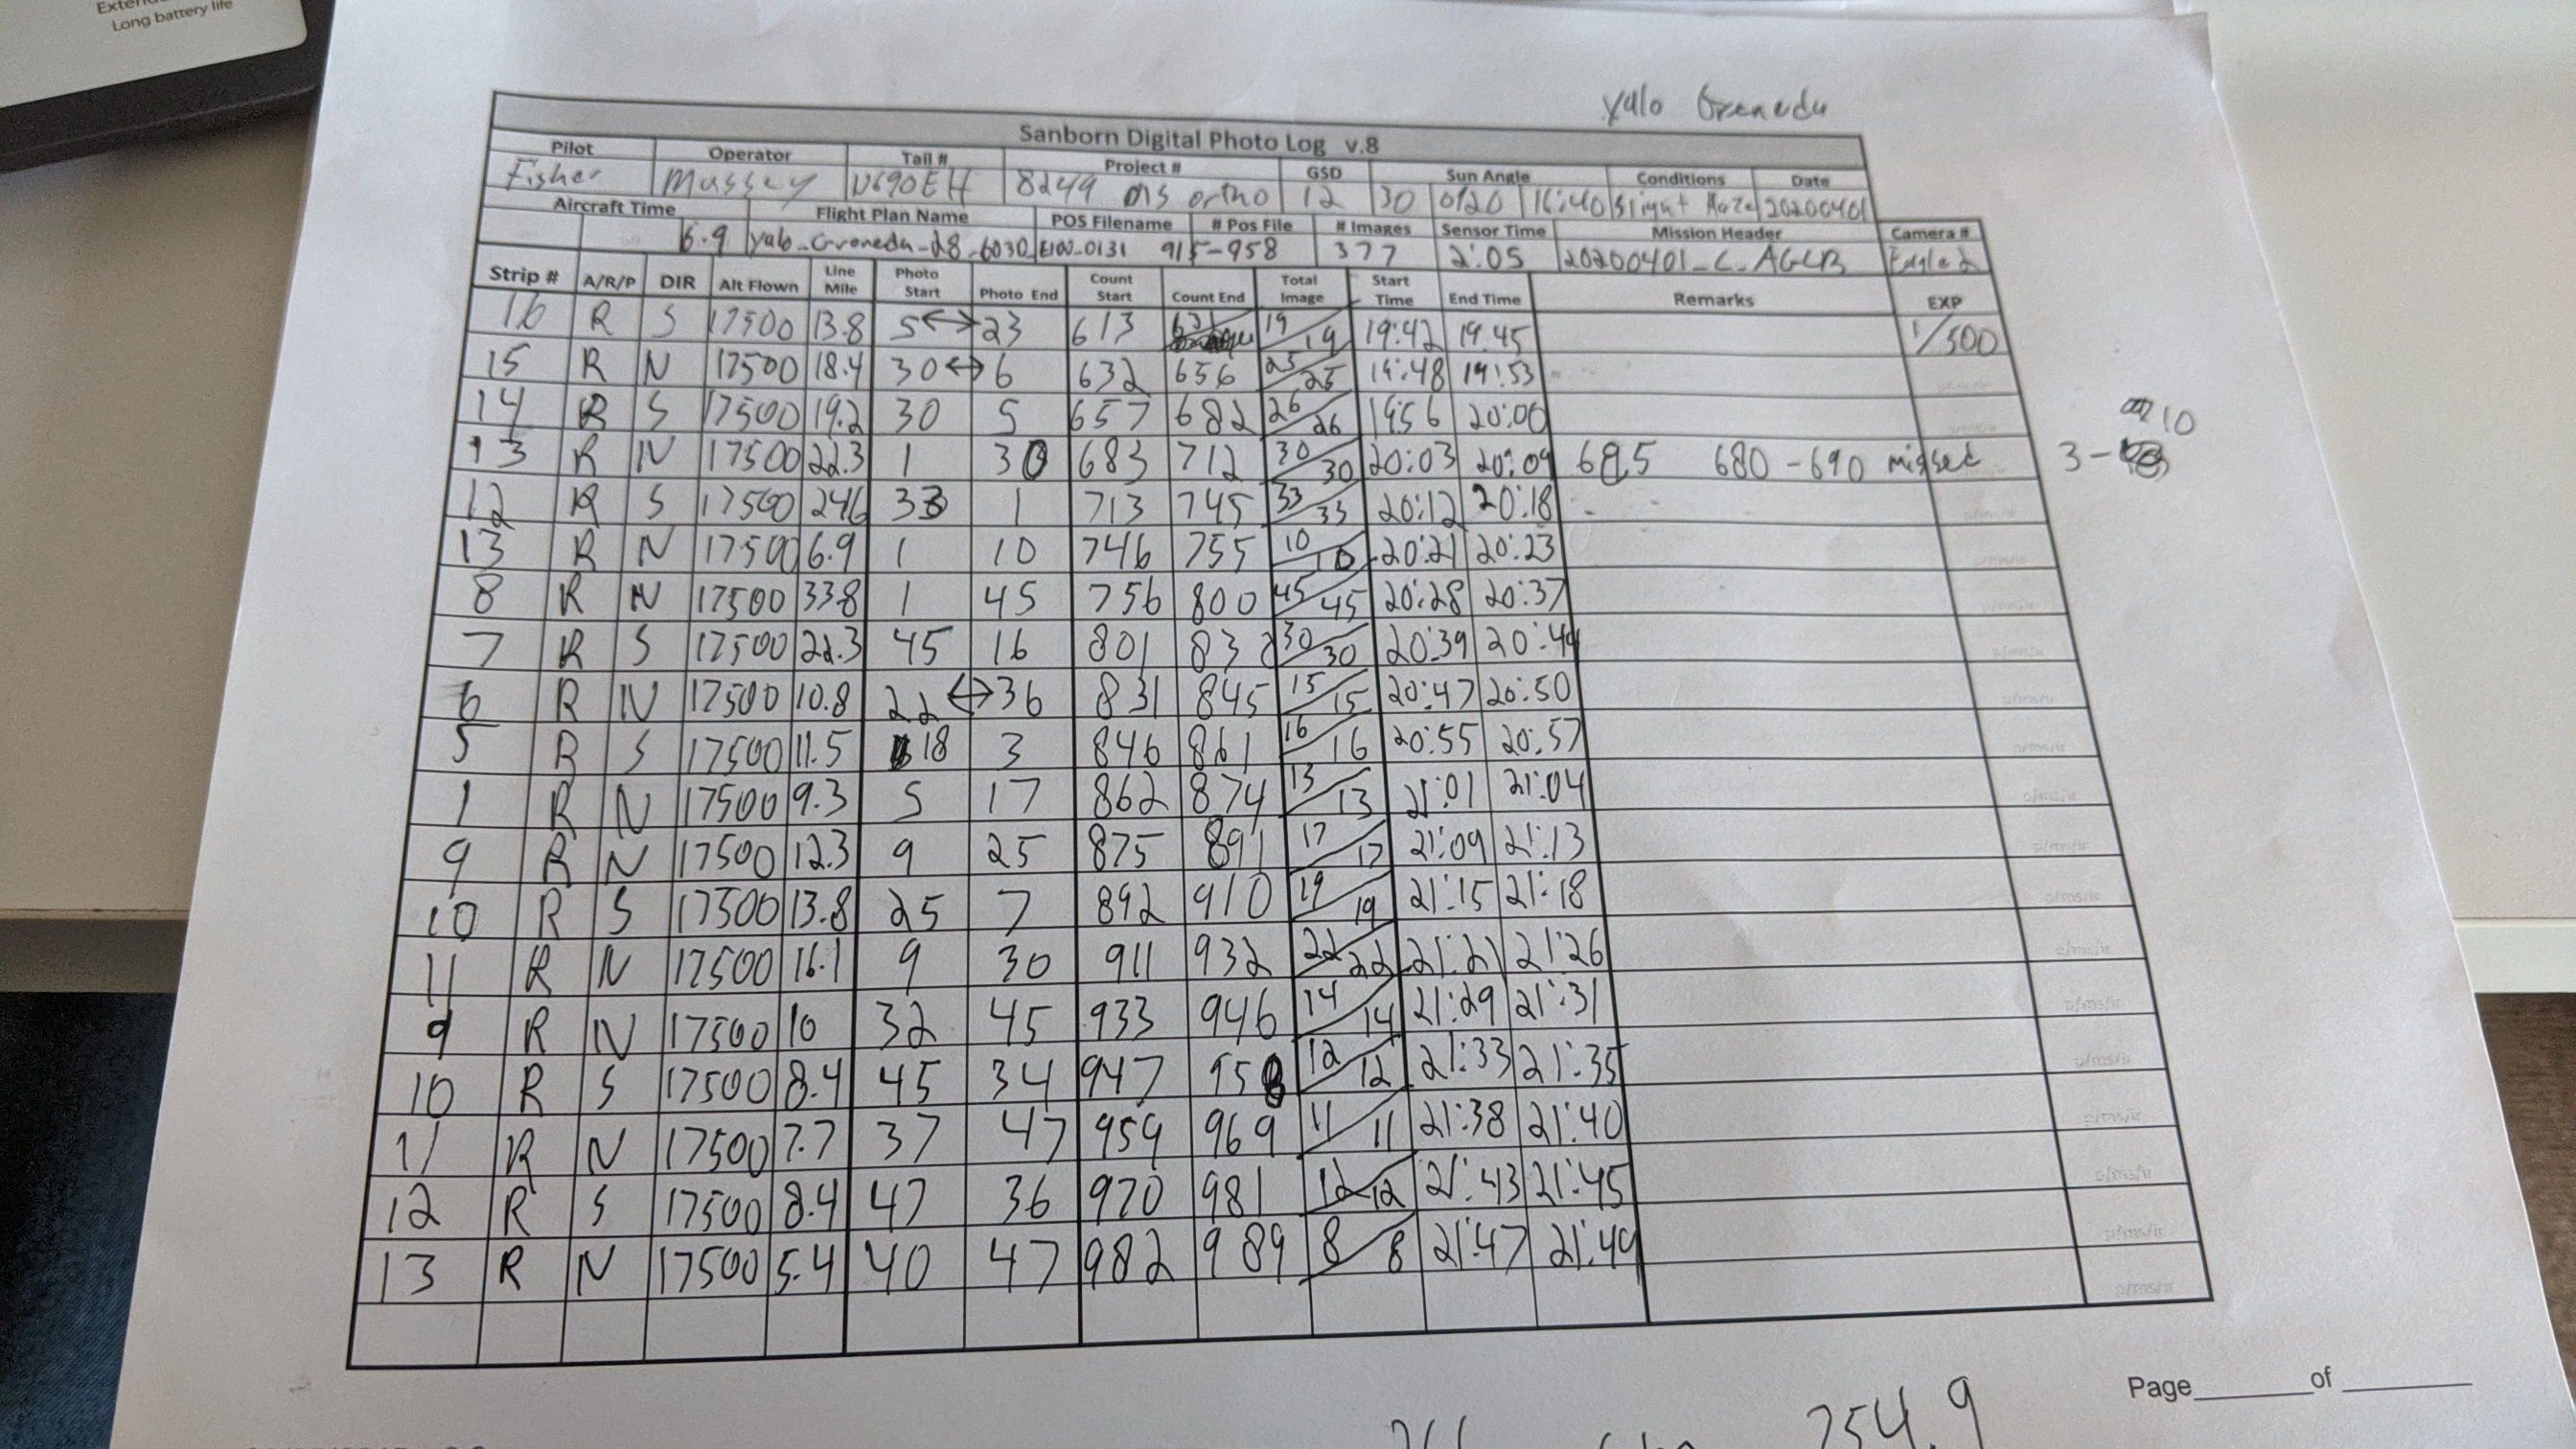 Long battery life
Yalo Grenedu
Sanborn Digital Photo Log v.8
Pilot Operator Tail # Project # GSD Sun Angle Conditions Date
Fisher Massey N690EH 8249 MS ortho 12 30 16:40 Slight Haze 20200401
Aircraft Time Flight Plan Name POS Filename # Pos File # Images Sensor Time Mission Header Camera #
6.9 E100_0131 915-958 377 2:05 20200401_C_AGCB
Strip # A/R/P DIR Alt Flown Line Mile Photo Start Photo End Count Start Count End Total Image Start Time End Time Remarks EXP
16 R S 17500 13.8 5 ↔ 23 613 631 19/19 19:42 19:45 1/500
15 R N 17500 18.4 30 ↔ 6 632 656 25/25 19:48 19:53
14 R S 17500 19.2 30 5 657 682 26/26 19:56 20:00 10
13 R N 17500 22.3 1 30 683 712 30/30 20:03 20:09 685 680-690 missed 3-
12 R S 17500 246 33 1 713 745 33/33 20:12 20:18
13 R N 17500 6.9 1 10 746 755 10/10 20:21 20:23
8 R N 17500 33.8 1 45 756 800 45/45 20:28 20:37
7 R S 17500 22.3 45 16 801 30/30 20:39 20:44
6 R N 17500 10.8 22 ↔ 36 831 845 15/15 20:47 20:50
5 R S 17500 11.5 18 3 846 861 16/16 20:55 20:57
1 R N 17500 9.3 5 17 862 874 13/13 21:01 21:04
9 R N 17500 12.3 9 25 875 891 17/17 21:09 21:13
10 R S 17500 13.8 25 7 892 910 19/19 21:15 21:18
11 R N 17500 16.1 9 30 911 932 22/22 21:21 21:26
9 R N 17500 10 32 45 933 946 14/14 21:29 21:31
10 R S 17500 8.4 45 34 947 958 12/12 21:33 21:35
11 R N 17500 7.7 37 47 959 969 11/11 21:38 21:40
12 R S 17500 8.4 47 36 970 981 12/12 21:43 21:45
13 R N 17500 5.4 40 47 982 989 8/8 21:47 21:49
Page of
254.9